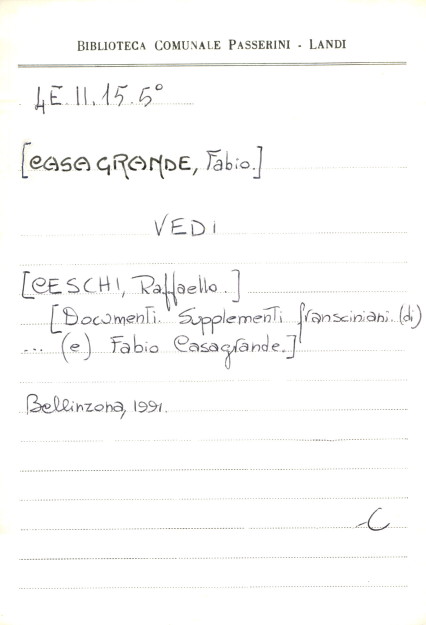 BIBLIOTECA COMUNALE PASSERINI - LANDI
4E.II.15.5°
[CASAGRANDE, Fabio.]
VEDI
[CESCHI, Raffaello.]
[Documenti. Supplementi franscíniani. (di)
... (e) Fabio Casagrande.]
Bellinzona, 1991.
-C